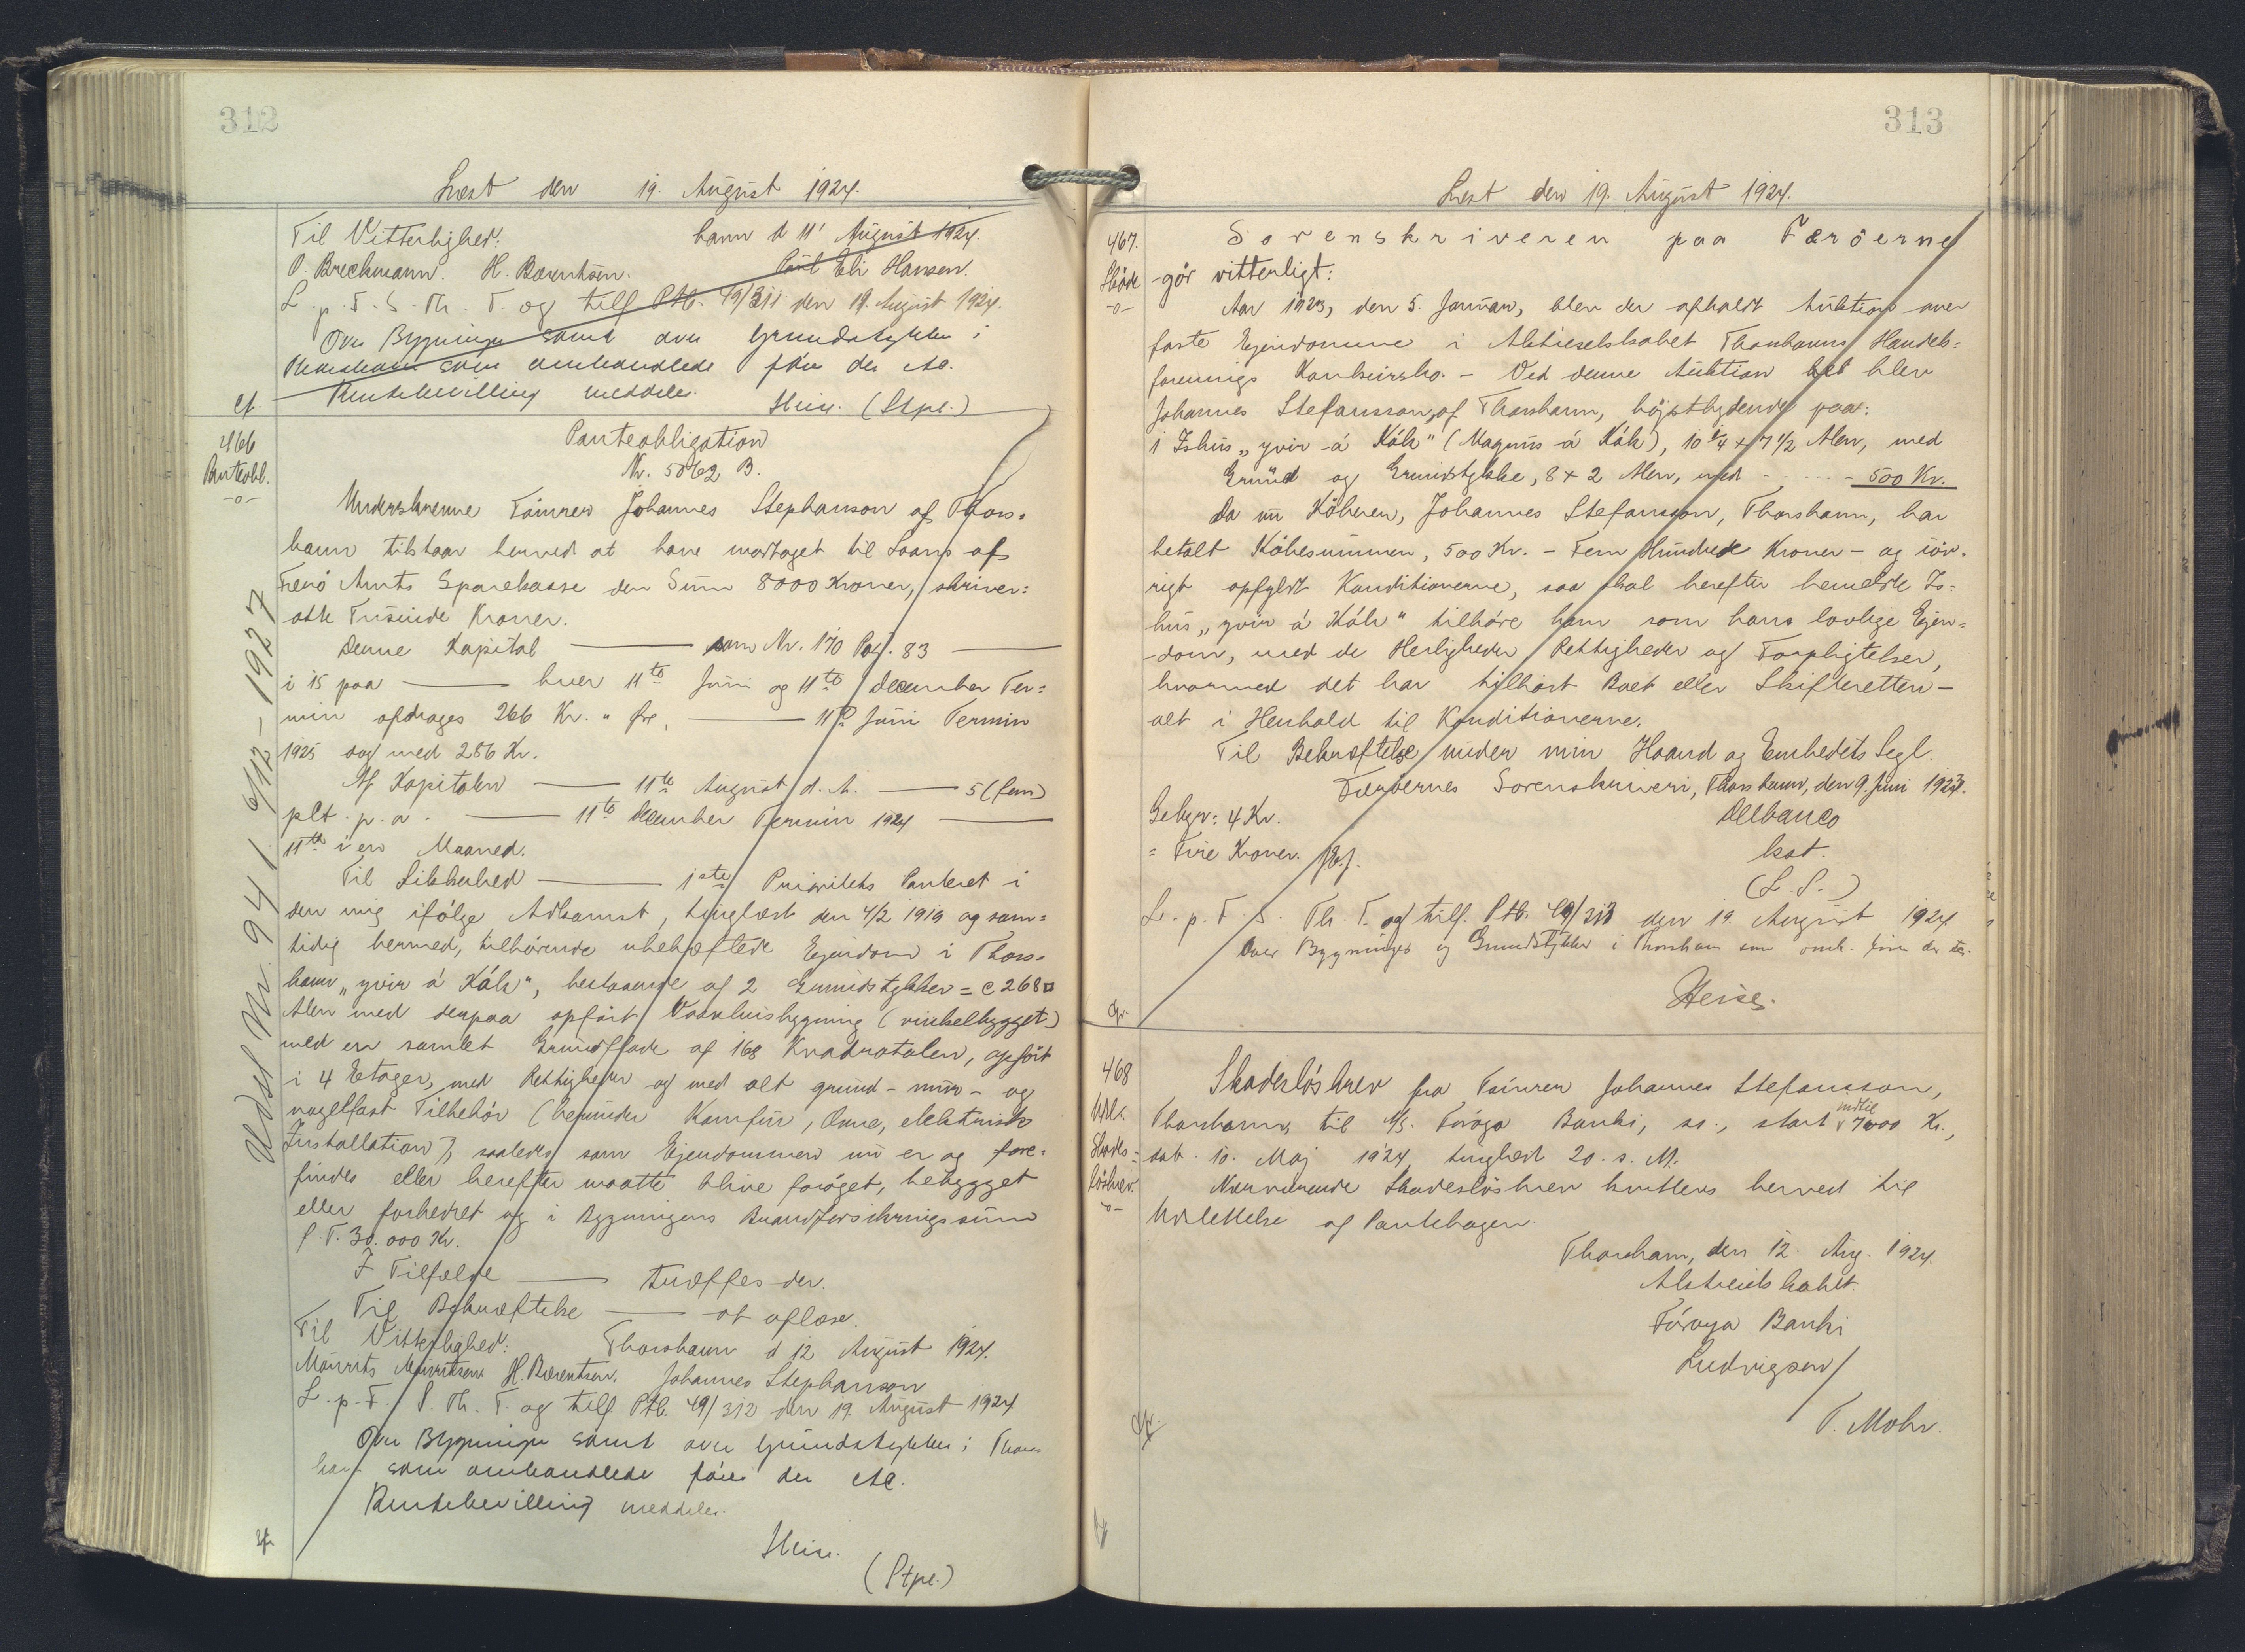 312
Læst den 19. August 1924.
Til Vitterlighed: havn d 11' August 1924.
P. Breckmann. H. Bærentsen. Poul Eli Hansen.
L. p. F. S. Th. T. og tilf Ptb. 49/311 den 19. August 1924.
Over Bygninger samt over Grundstykker i
Thorshavn som omhandlede før der etc.
Rentebevilling meddeles.
cf. Heise. (Stpl.)
466 Panteobligation
Panteobl. Nr. 5062 B.
-o-
Underskrevne Tømrer Johannes Stephanson af Thors-
havn tilstaar herved at have modtaget til Laans af
Færø Amts Sparekasse den Sum 8000 Kroner, skriver:
otte Tusinde Kroner.
Denne Kapital — som Nr. 170 Pag. 83 —
i 15 paa — hver 11te Juni og 11te December Ter=
min afdrages 266 Kr. " Øre, — 11te Juni Termin
1925 dog med 286 Kr.
Af Kapitalen — 11te August d. A. — 5 (fem)
pCt. p. a. — 11te December Termin 1924 —
11te i en Maaned.
Til Sikkerhed — 1ste Prioritets Panteret i
den mig ifølge Adkomst, tinglæst den 4/2 1919 og sam=
tidig hermed, tilhørende ubehæftede Ejendom i Thors=
havn „yvir á Kák", bestaaende af 2 Grundstykker = c 268 □
Alen med derpaa opført Vaaningsbygning (vinkelbygget)
med en samlet Grundflade af 168 Kvadratalen, opført
i 4 Etager, med Rettigheder og med alt grund- mur- og
nagelfast Tilbehør (herunder Komfur, Ovne, elektrisk
Installation), saaledes som Ejendommen nu er og fore=
findes eller herefter maatte blive forøget, bebygget
eller forbedret og i Bygningens Brandforsikringssum
p. T. 30.000 Kr.
I Tilfælde — træffes der.
Til Bekræftelse — at aflæse.
Til Vitterlighed: Thorshavn d 12 August 1924.
Maurits Mauritsen H. Bærentsen. Johannes Stephanson
L. p. F. S. Th. T. og tilf Ptb. 49/312 den 19. August 1924
Over Bygninger samt over Grundstykker i Thors
havn som omhandlede før der etc.
Rentebevilling meddeles.
Heise.
(Stpl.)
Udsl. Nr. 94 1 6/12 - 1927
313
Læst den 19. August 1924.
467. Sorenskriveren paa Færøerne
Skøde gør vitterligt:
-o- Aar 1923, den 5. Januar, blev der afholdt Auktion over
faste Ejendomme i Aktieselskabet Thorshavns Handels=
forenings Konkursbo. - Ved denne Auktion blev
Johannes Stefansson, af Thorshavn, højstbydende paa:
1 Ishus „yvir á Kák" (Magnus á Kák), 10 1/4 x 7 1/2 Alen, med
Grund og Grundstykke, 8 x 2 Alen, med - - - - - 500 Kr.
Da nu Køberen, Johannes Stefansson, Thorshavn, har
betalt Købesummen, 500 Kr. - Fem Hundrede Kroner - og iøv-
rigt opfyldt Konditionerne, saa skal herefter bemeldte Is=
hus „yvir á Kák" tilhøre ham som hans lovlige Ejen=
dom, med de Herligheder Rettigheder og Forpligtelser,
hvormed det har tilhørt Boet eller Skifteretten -
alt i Henhold til Konditionerne.
Til Bekræftelse under min Haand og Embedets Segl.
Færøernes Sorenskriveri, Thorshavn, den 9. Juni 1923.
Gebyr: 4 Kr. Dellbanco
= Fire Kroner. kst.
(L. S.)
L. p. F. S. Th. T. og tilf. Ptb. 49/313 den 19. August 1924
Over Bygninger og Grundstykker i Thorshavn som omh. før der etc.
Heise.
468 Skadesløsbrev fra Tømrer Johannes Stefansson,
Udl. Thorshavn, til A/S. Føroya Banki, st., stort indtil 7000 Kr.,
Skades= dat. 10. Maj 1924 tinglæst 20. s. M.
løsbrev. Nærværende Skadesløsbrev kvitteres herved til
-o- Udslettelse af Pantebogen.
Thorshavn, den 12. Aug. 1924.
Aktieselskabet
Føroya Banki
Ludvigsen/
T. Mohr.